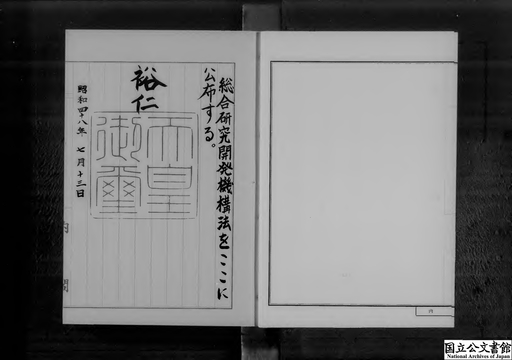 総合研究開発機構法をここに
公布する。
裕仁
天皇
御璽
昭和四十八年 七月十三日
内閣
国立公文書館
National Archives of Japan